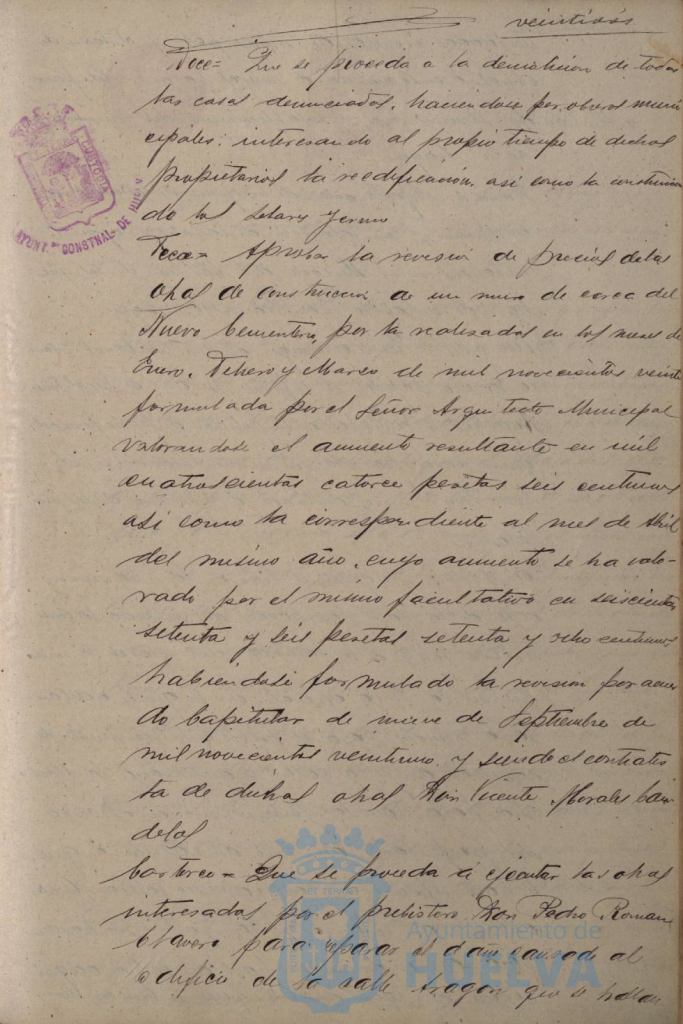 veintidós
Doce= Que se proceda a la demolicion de todas
las casas denunciadas, haciendose por obreros muni
cipales: interesando al propio tiempo de dichos
propietarios la reedificación, así como la construccion
de los solares yermo
Trece= Aprobar la revisión de precios de las
obras de construccion de un muro de cerca del
Nuevo Cementerio, por la realizadas en los meses de
Enero, Febrero y Marzo de mil novecientos veinte
formulada por el Señor Arquitecto Municipal
valorandose el aumento resultante en mil
cuatrocientas catorce pesetas seis centimos
así como la correspondiente al mes de Abril
del mismo año, cuyo aumento se ha valo-
rado por el mismo facultativo en seiscientas
setenta y seis pesetas setenta y ocho centimos,
habiendose formulado la revision por acuer
do Capitular de nueve de Septiembre de
mil novecientos veintiuno y siendo el contratis
ta de dichas obras Don Vicente Morales Can
delas
Catorce= Que se proceda a ejecutar las obras
interesadas por el presbitero Don Pedro Roman
Clavero para reparar el daño causado al
edificio de la calle Aragon que se hallan
AYUNT. CONSTNAL. DE HUELVA
Ayuntamiento de
HUELVA